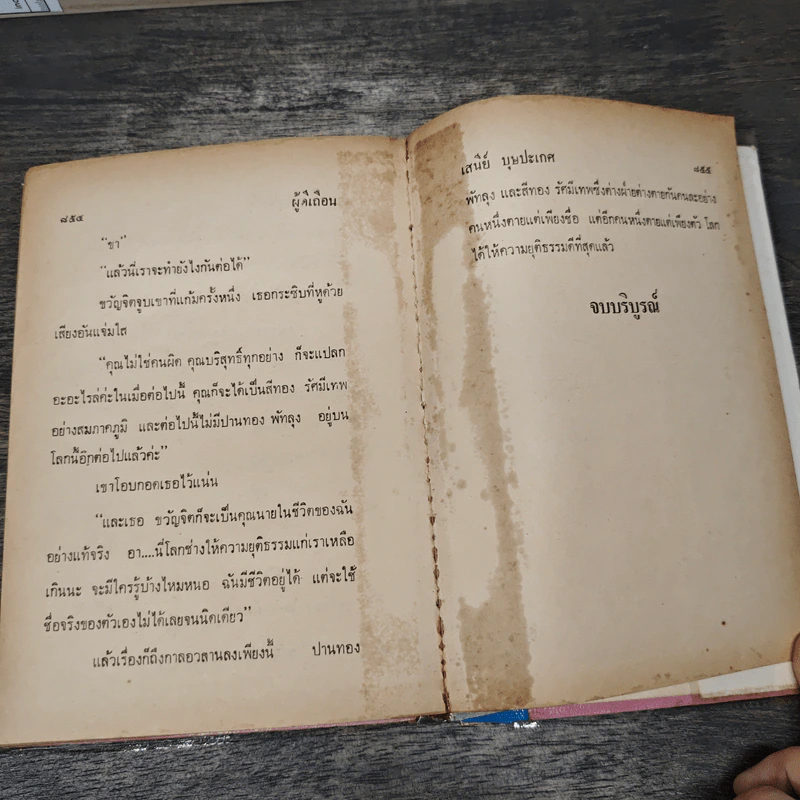 ๘๕๔ ผู้ดีเถื่อน
“ขา”
“แล้วนี่เราจะทำยังไงกันต่อได้”
ขวัญจิตจูบเขาที่แก้มครั้งหนึ่ง เธอกระซิบที่หูด้วย
เสียงอันแจ่มใส
“คุณไม่ใช่คนผิด คุณบริสุทธิ์ทุกอย่าง ก็จะแปลก
อะอะไรล่ค่ะในเมื่อต่อไปนี้ คุณก็จะได้เป็นสีทอง รัศมีเทพ
อย่างสมภาคภูมิ และต่อไปนี้ไม่มีปานทอง พัทลุง อยู่บน
โลกนี้อีกต่อไปแล้วค่ะ”
เขาโอบกอดเธอไว้แน่น
“และเธอ ขวัญจิตก็จะเป็นคุณนายในชีวิตของฉัน
อย่างแท้จริง อา....นี่โลกช่างให้ความยุติธรรมแก่เราเหลือ
เกินนะ จะมีใครรู้บ้างไหมหนอ ฉันมีชีวิตอยู่ได้ แต่จะใช้
ชื่อจริงของตัวเองไม่ได้เลยจนนิดเดียว”
แล้วเรื่องก็ถึงกาลอวสานลงเพียงนี้ ปานทอง
เสนีย์ บุษปะเกศ ๘๕๕
พัทลุง และสีทอง รัศมีเทพซึ่งต่างฝ่ายต่างตายกันคนละอย่าง
คนหนึ่งตายแต่เพียงชื่อ แต่อีกคนหนึ่งตายแต่เพียงตัว โลก
ได้ให้ความยุติธรรมดีที่สุดแล้ว
จบบริบูรณ์